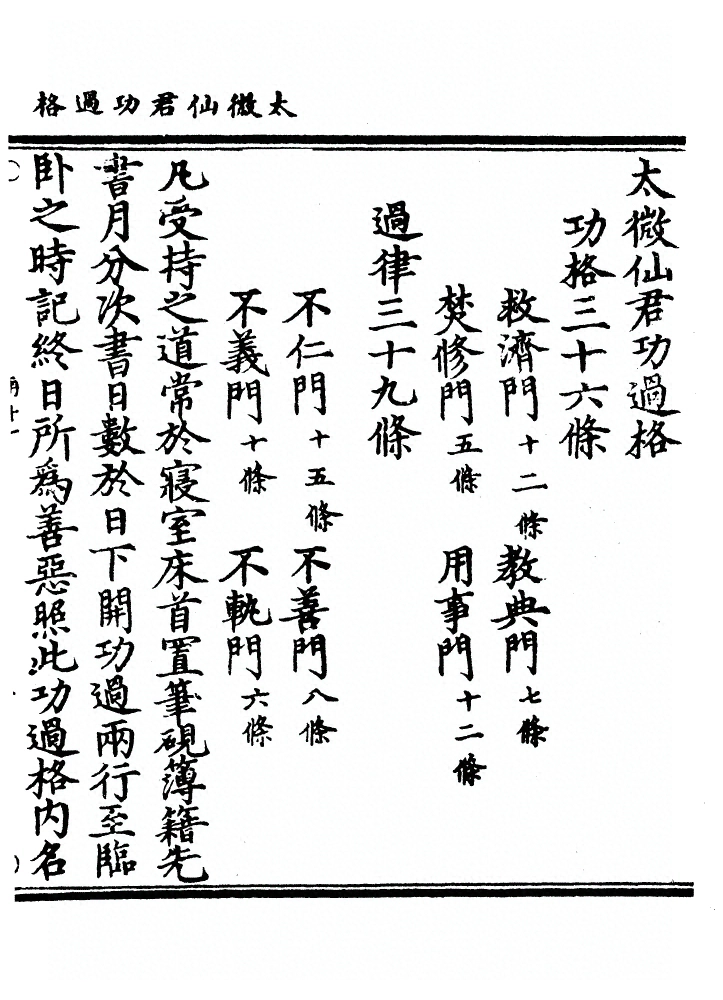 太微仙君功過格
太微仙君功過格
功格三十六條
救濟門十二條 教典門七條
焚修門五條 用事門十二條
過律三十九條
不仁門十五條 不善門八條
不義門十條 不軌門六條
凡受持之道常於寢室床首置筆硯簿籍先
書月分次書日數於日下開功過兩行至臨
卧之時記終日所爲善惡照此功過格内名